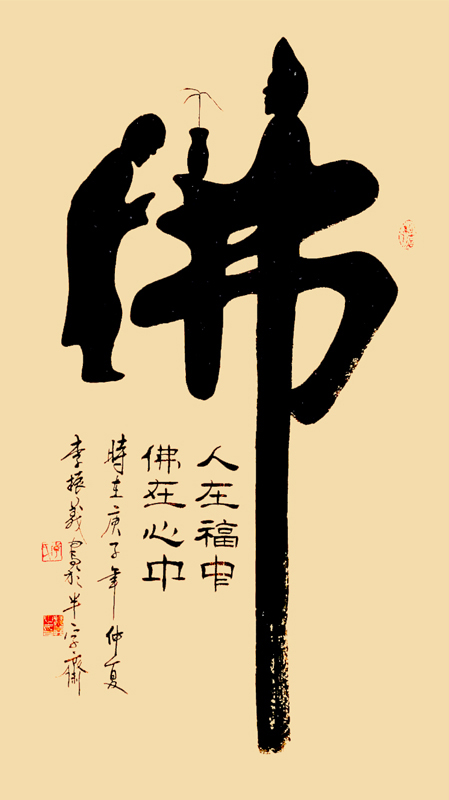 佛
人在福中
佛在心中
時在庚子年仲夏
李振義書於半字齋